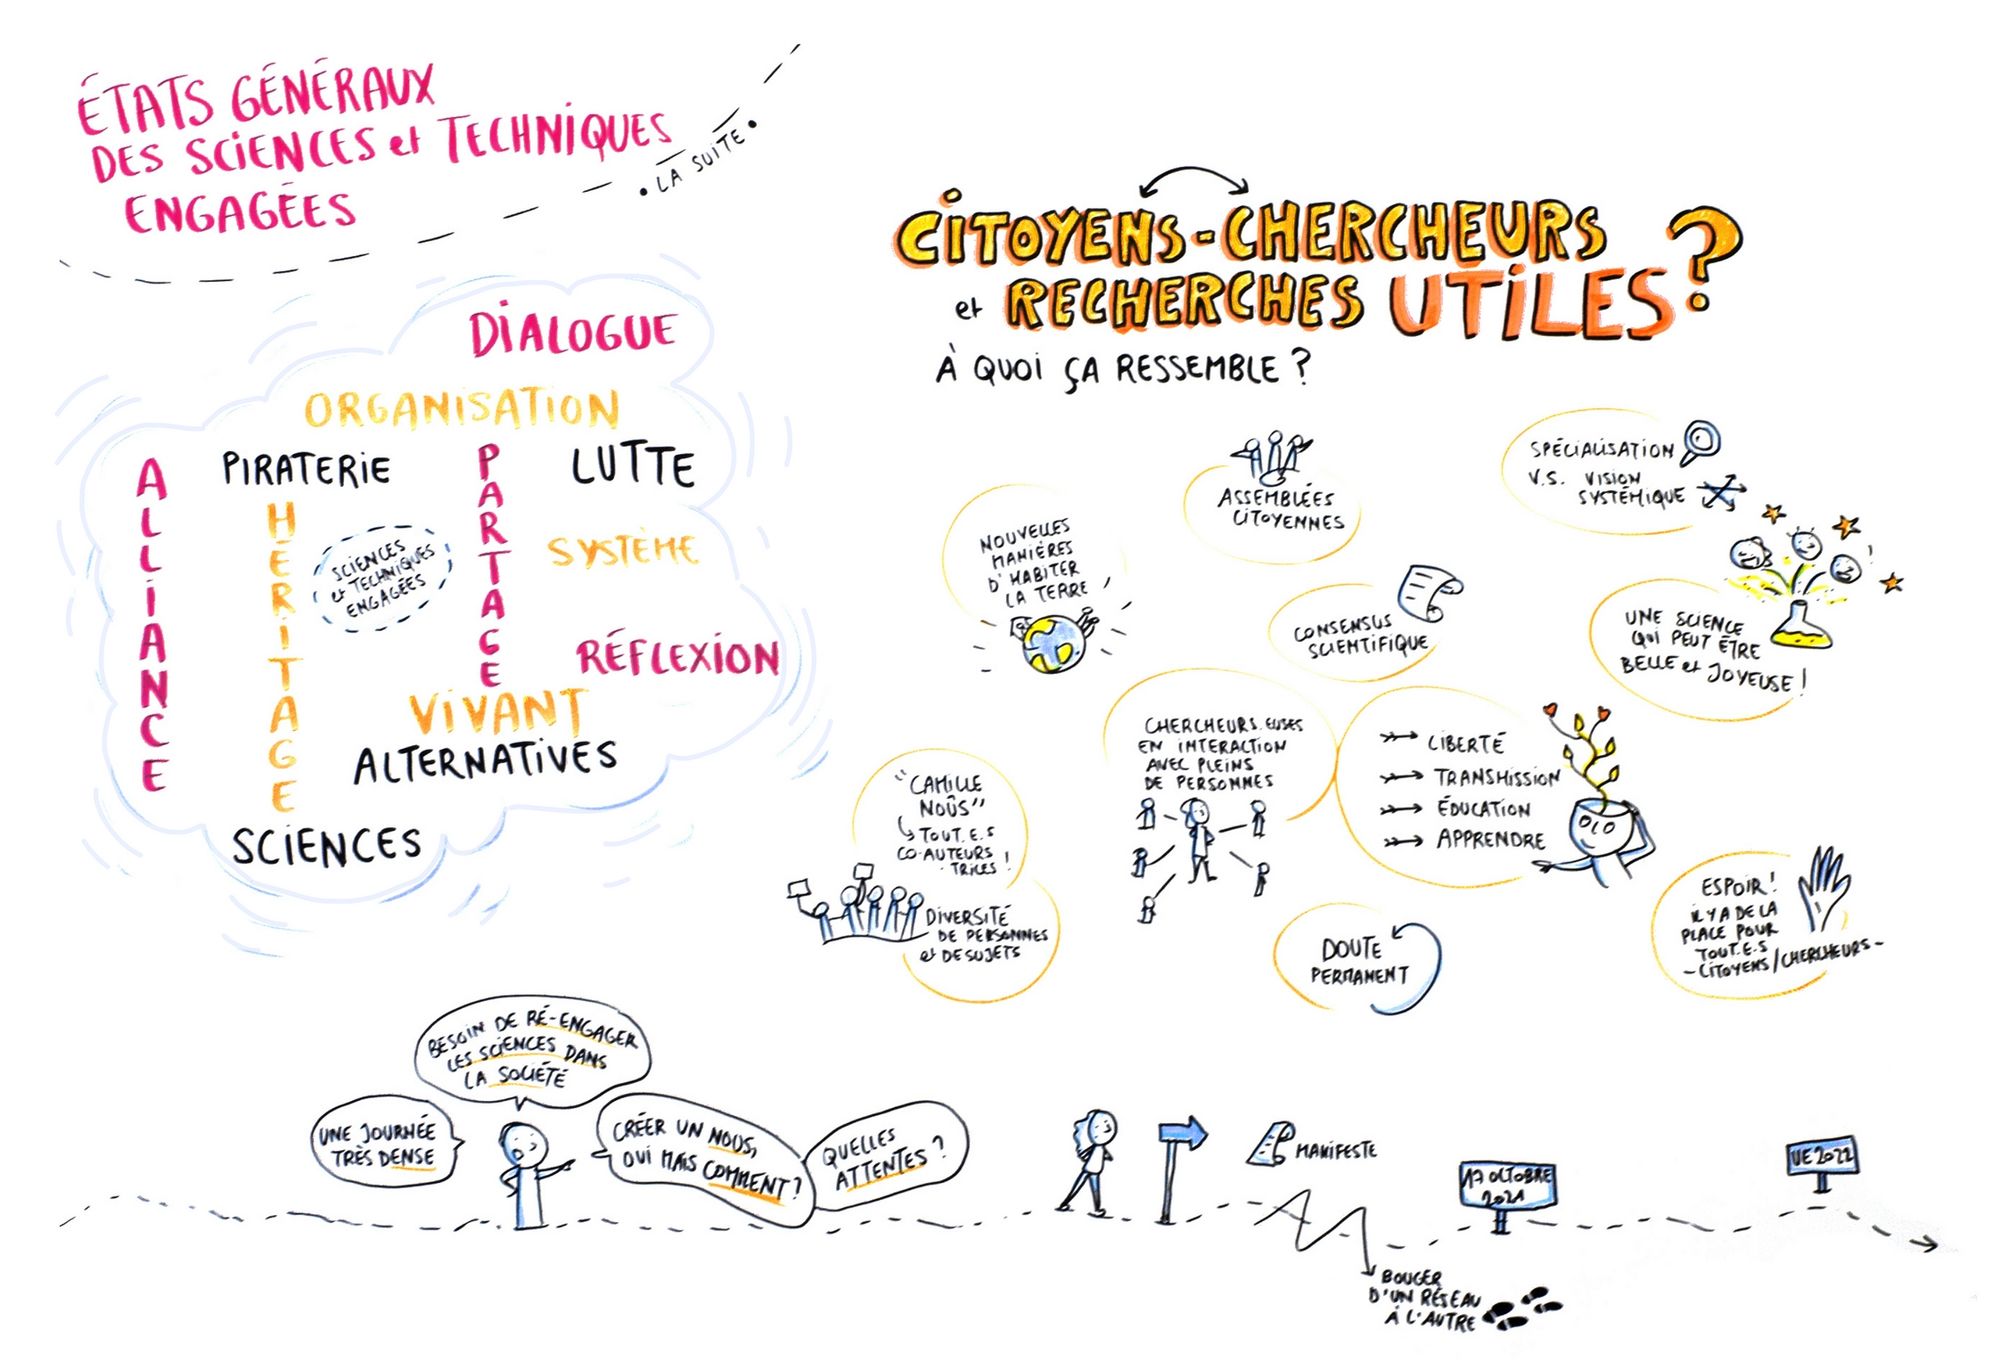 ÉTATS GÉNÉRAUX
DES SCIENCES et TECHNIQUES
ENGAGÉES
• LA SUITE •
DIALOGUE
ORGANISATION
PIRATERIE
LUTTE
ALLIANCE
HERITAGE
PARTAGE
SCIENCES
et TECHNIQUES
ENGAGÉES
SYSTÈME
RÉFLEXION
VIVANT
ALTERNATIVES
SCIENCES
CITOYENS-CHERCHEURS
et RECHERCHES UTILES ?
À QUOI ÇA RESSEMBLE ?
NOUVELLES
MANIÈRES
D'HABITER
LA TERRE
ASSEMBLÉES
CITOYENNES
SPÉCIALISATION
V.S. VISION
SYSTÉMIQUE
CONSENSUS
SCIENTIFIQUE
UNE SCIENCE
QUI PEUT ÊTRE
BELLE et JOYEUSE !
CHERCHEURS.EUSES
EN INTERACTION
AVEC PLEINS
DE PERSONNES
LIBERTÉ
TRANSMISSION
ÉDUCATION
APPRENDRE
"CAMILLE
NOÛS"
TOUT.E.S
CO-AUTEURS
.TRICES !
DIVERSITÉ
DE PERSONNES
et DE SUJETS
DOUTE
PERMANENT
ESPOIR !
IL Y A DE LA
PLACE POUR
TOUT.E.S
- CITOYENS/CHERCHEURS -
BESOIN DE RÉ-ENGAGER
LES SCIENCES DANS
LA SOCIÉTÉ
UNE JOURNÉE
TRÈS DENSE
CRÉER UN NOUS,
OUI MAIS COMMENT ?
QUELLES
ATTENTES ?
MANIFESTE
17 OCTOBRE
2021
UE 2022
BOUGER
D'UN RÉSEAU
À L'AUTRE